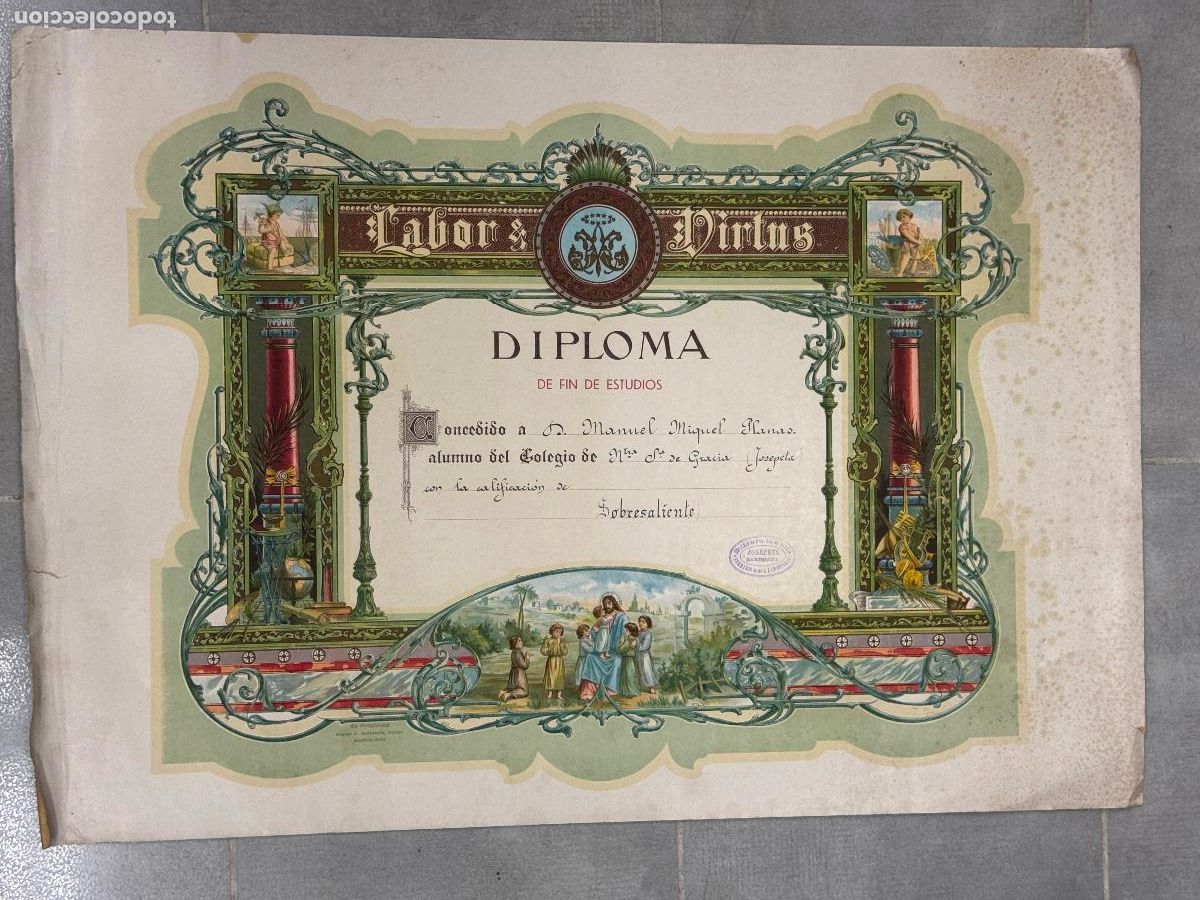 todocoleccion
Labor & Virtus
DIPLOMA
DE FIN DE ESTUDIOS
Concedido a D. Manuel Miquel Planas.
alumno del Colegio de Ntra Sa de Gracia (Josepets)
con la calificación de
Sobresaliente
JOSEPETS
BARCELONA
BARCELONA